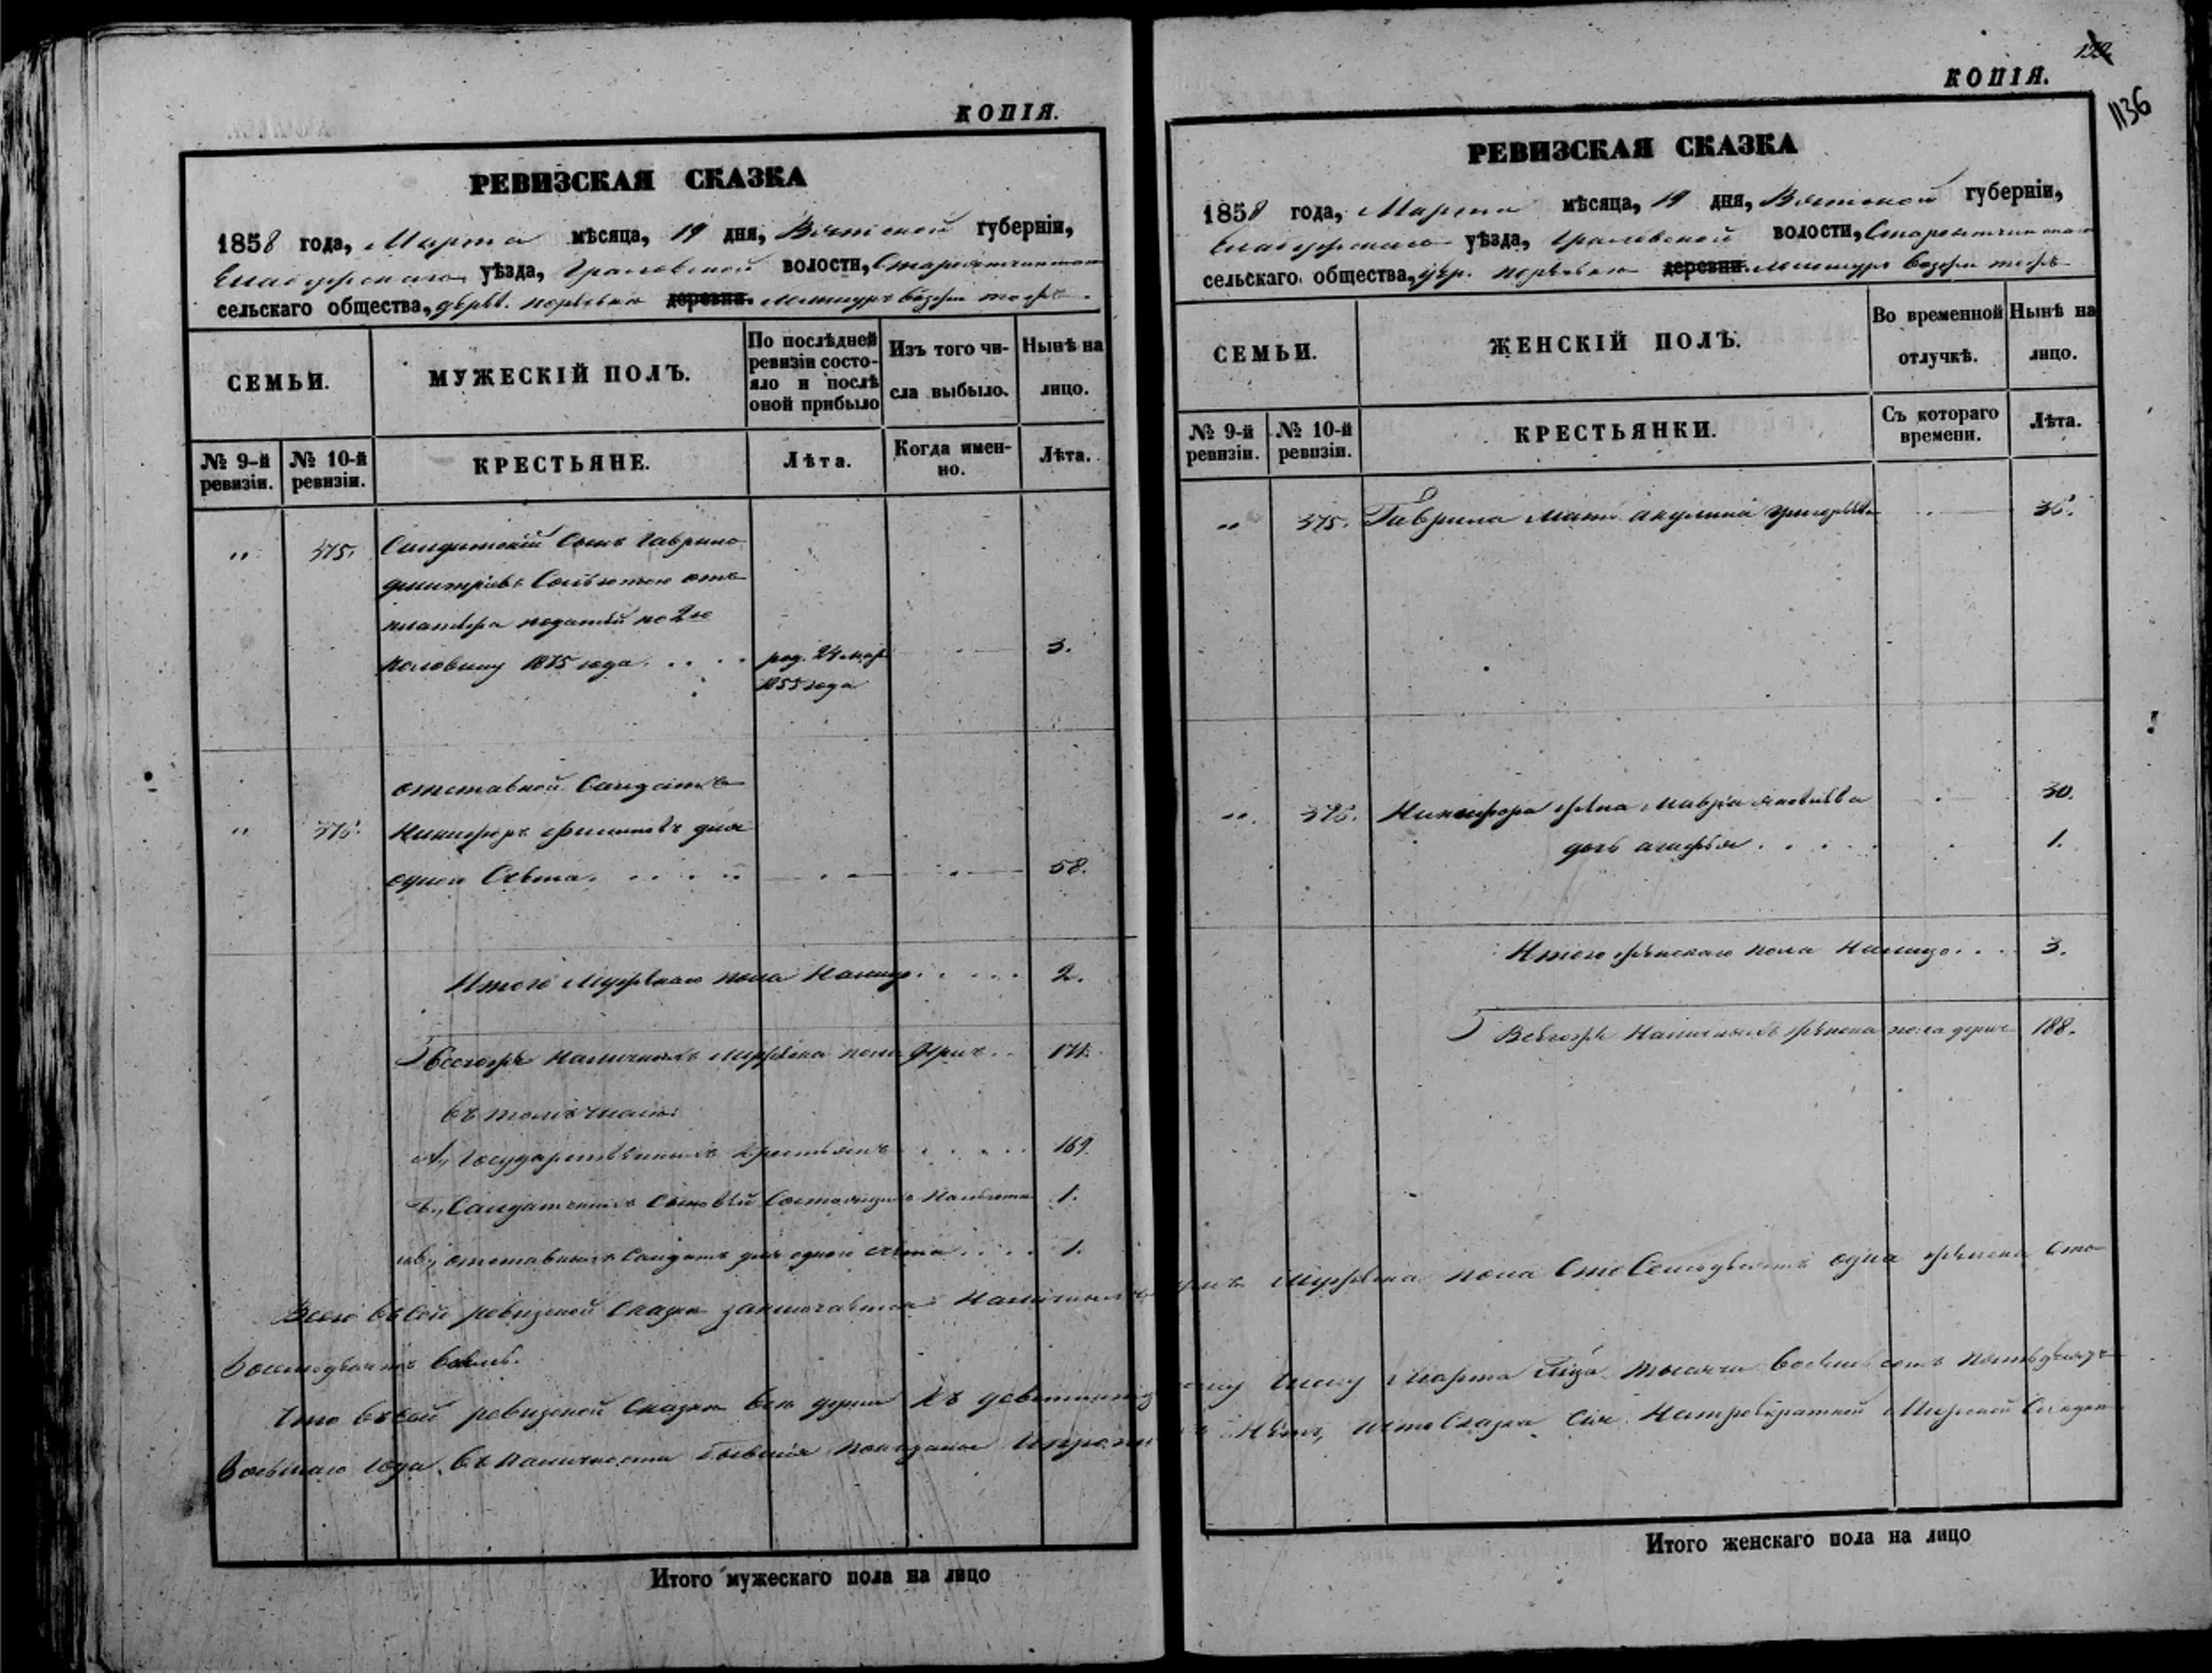 КОПІЯ.
РЕВИЗСКАЯ СКАЗКА
1858 года, Марта мѣсяца, 19 дня, Вятской губерніи,
Елабужскаго уѣзда, Граховской волости,
сельскаго общества, дерев. деревни
СЕМЬИ.
МУЖЕСКІЙ ПОЛЪ.
По послѣдней ревизіи состояло и послѣ оной прибыло
Изъ того числа выбыло.
Нынѣ на лицо.
№ 9-й ревизіи.
№ 10-й ревизіи.
КРЕСТЬЯНЕ.
Лѣта.
Когда именно.
Лѣта.
„ 375. Солдатскій сынъ Гаврило
Дмитріевъ отъ
платежа податей по 2ю
половину 1875 года род. 24 мар. 3.
1855 года
отставной солдатъ
„ Никифоръ для
одного счета. 58.
Итого мужескаго пола налицо 2.
Всего же наличныхъ мужеска пола 171.
въ томъ числѣ:
А, Государственныхъ крестьянъ 169.
Б, Солдатскихъ сыновей состоящихъ на льготѣ 1.
и В, отставныхъ солдатъ для одного счета 1.
Всего въ сей ревизской сказкѣ заключается наличныхъ душъ мужеска пола сто семьдесятъ одна женска сто
восемьдесятъ восемь.
Что въ сей ревизской сказкѣ всѣ души къ девятнадцатому числу Марта м-ца тысяча восемь сотъ пятьдесятъ
восьмаго года, въ наличности бывшія показаны и нѣтъ, и что сказка сія на мірской
Итого мужескаго пола на лицо
122
КОПІЯ.
1136
РЕВИЗСКАЯ СКАЗКА
1858 года, Марта мѣсяца, 19 дня, Вятской губерніи,
Елабужскаго уѣзда, Граховской волости,
сельскаго общества, дер. деревни
СЕМЬИ.
ЖЕНСКІЙ ПОЛЪ.
Во временной отлучкѣ.
Нынѣ на лицо.
№ 9-й ревизіи.
№ 10-й ревизіи.
КРЕСТЬЯНКИ.
Съ котораго времени.
Лѣта.
„ 375. Гаврила мать Акулина Григорьева 36.
„ Никифора жена Мавра Яковлева 30.
дочь Агафья 1.
Итого женскаго пола налицо 3.
Всего же наличныхъ женска пола душъ 188.
Итого женскаго пола на лицо